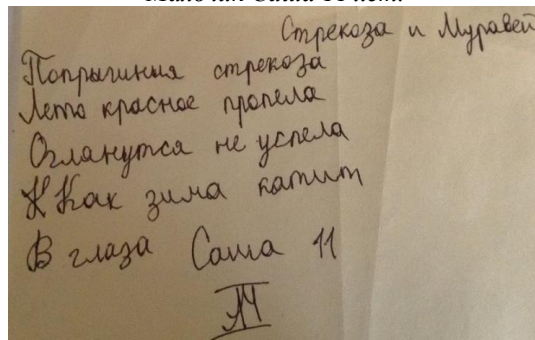 Стрекоза и Муравей
Попрыгиния стрекоза
Лето красное пропела
Оглянутся не успела
Как зима катит
В глаза Саша 11